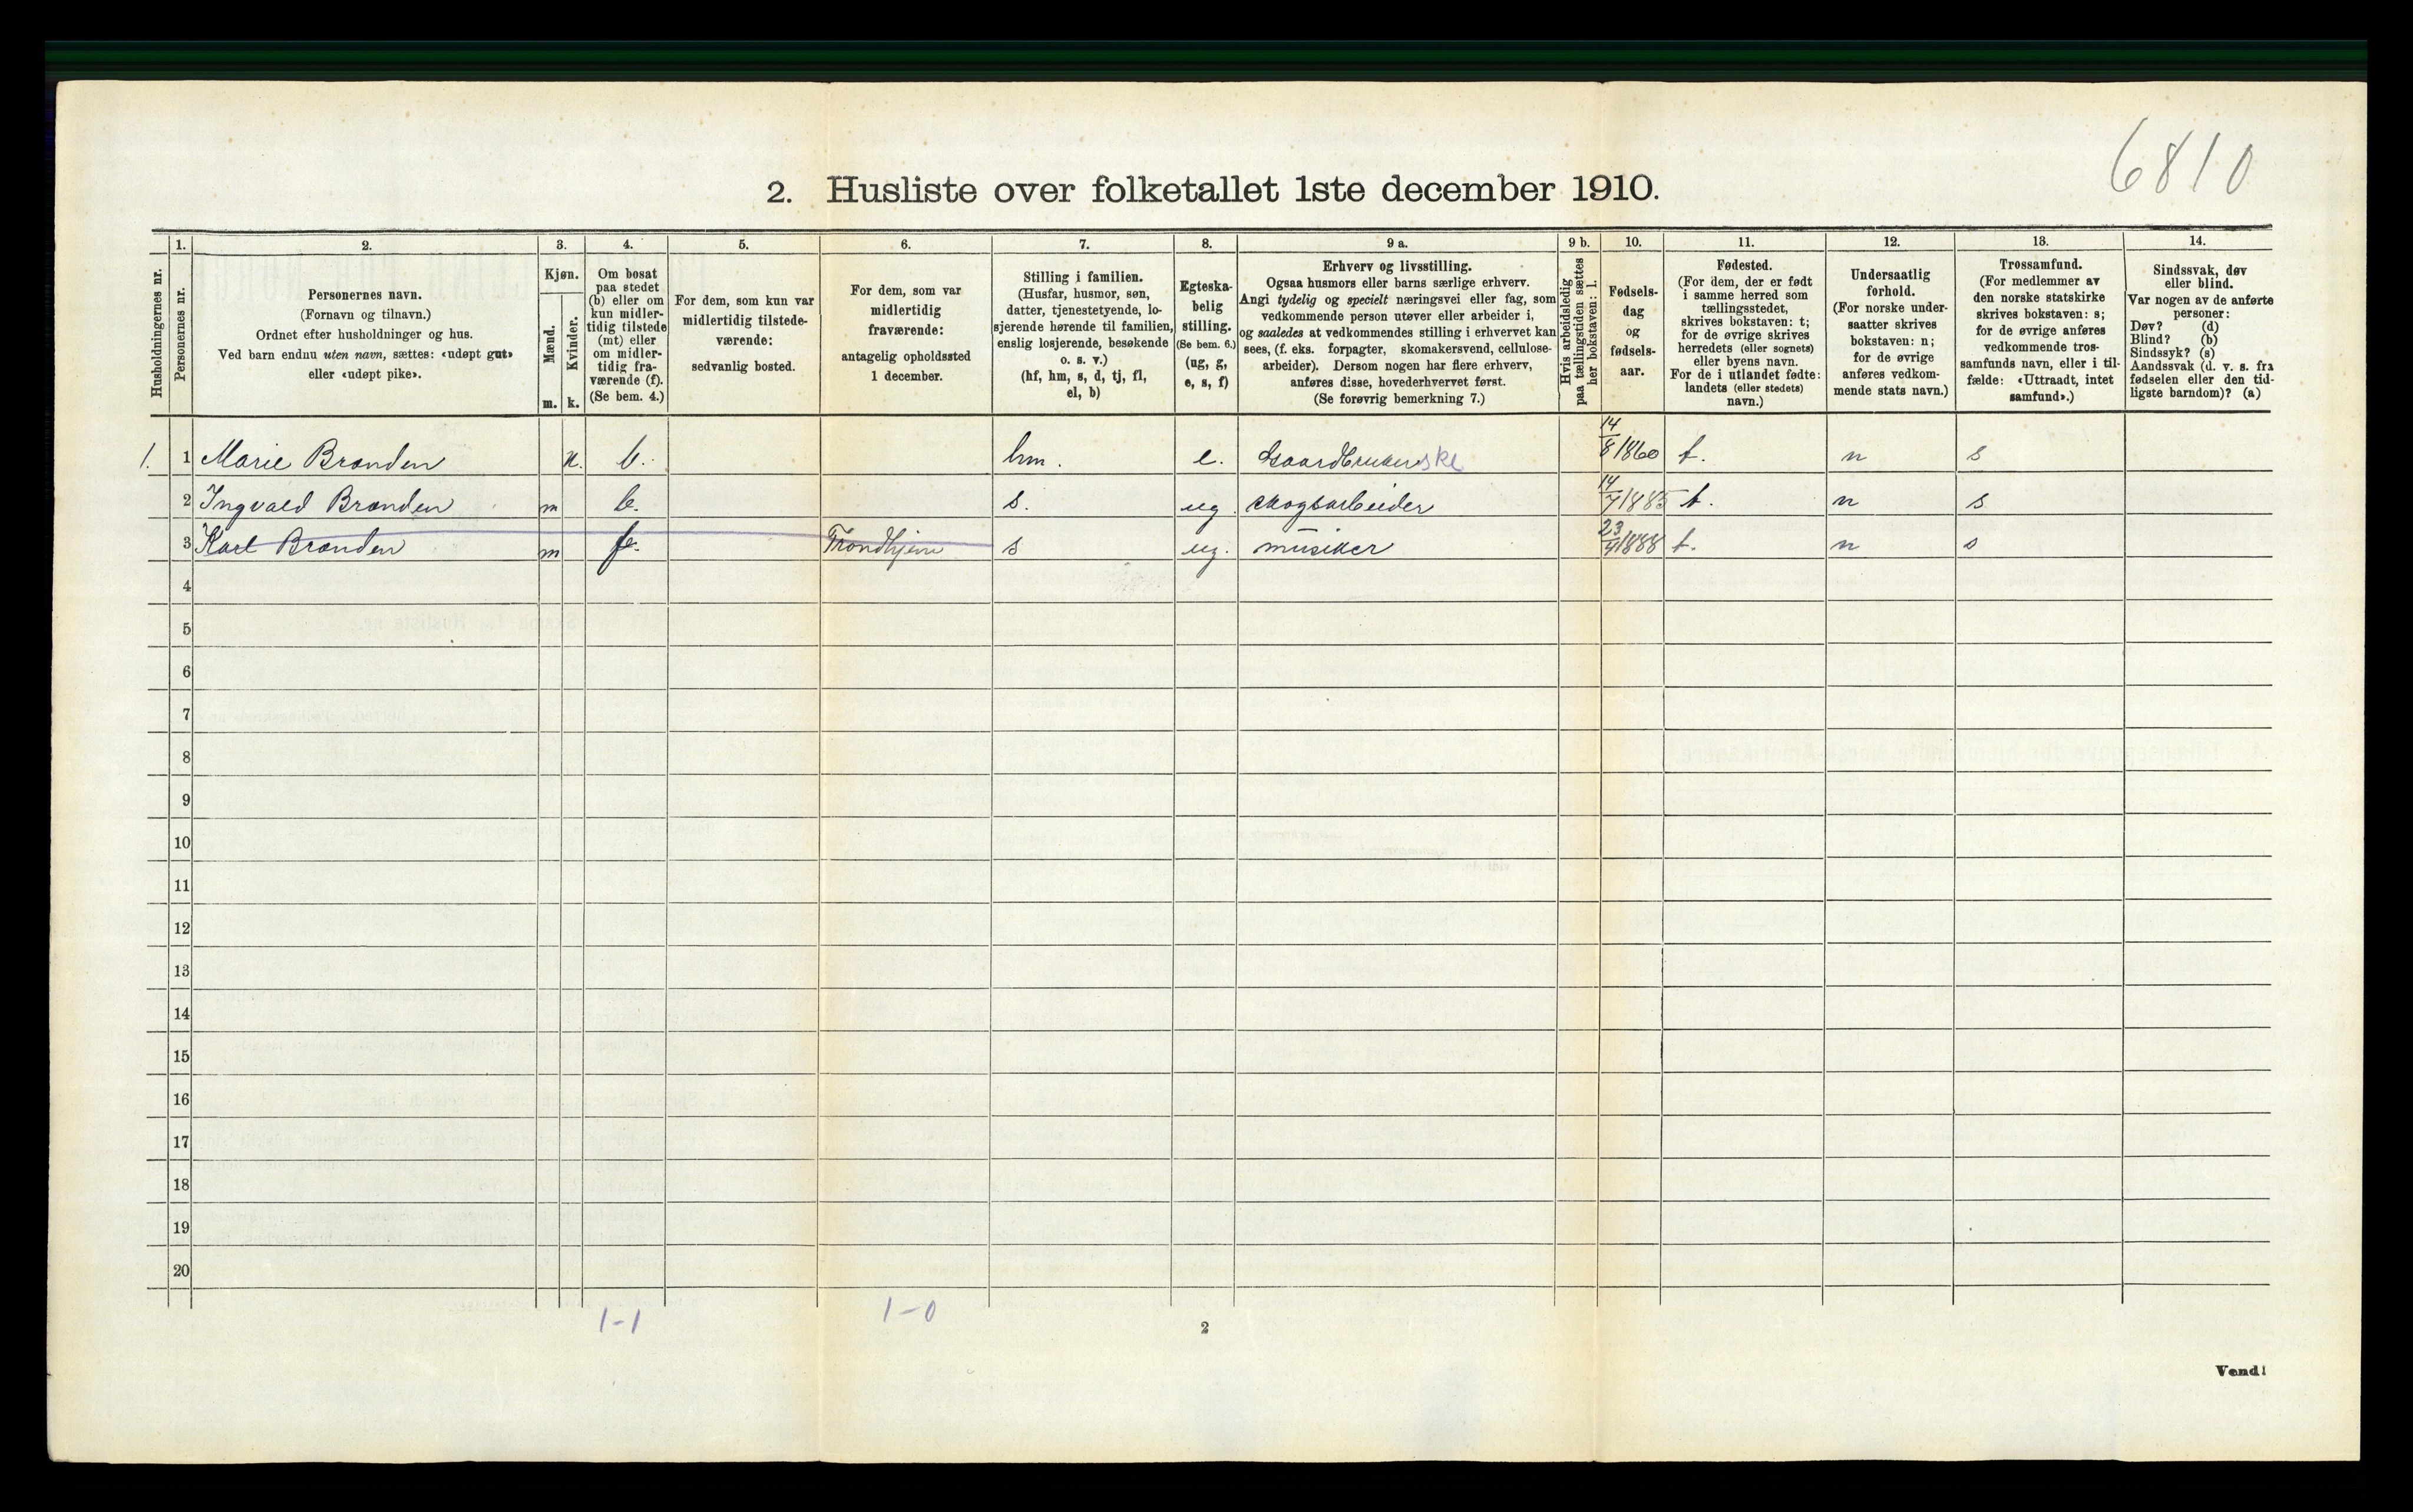 6810
2. Husliste over folketallet 1ste december 1910.
Husholdningernes nr.
1.
Personernes nr.
2.
Personernes navn.
(Fornavn og tilnavn.)
Ordnet efter husholdninger og hus.
Ved barn endnu uten navn, sættes: «udøpt gut»
eller «udøpt pike».
3.
Kjøn.
Mænd.
m.
Kvinder.
k.
4.
Om bosat
paa stedet
(b) eller om
kun midler-
tidig tilstede
(mt) eller
om midler-
tidig fra-
værende (f).
(Se bem. 4.)
5.
For dem, som kun var
midlertidig tilstede-
værende:
sedvanlig bosted.
6.
For dem, som var
midlertidig
fraværende:
antagelig opholdssted
1 december.
7.
Stilling i familien.
(Husfar, husmor, søn,
datter, tjenestetyende, lo-
sjerende hørende til familien,
enslig losjerende, besøkende
o. s. v.)
(hf, hm, s, d, tj, fl,
el, b)
8.
Egteska-
belig
stilling.
(Se bem. 6.)
(ug, g,
e, s, f)
9 a.
Erhverv og livsstilling.
Ogsaa husmors eller barns særlige erhverv.
Angi tydelig og specielt næringsvei eller fag, som
vedkommende person utøver eller arbeider i,
og saaledes at vedkommendes stilling i erhvervet kan
sees, (f. eks. forpagter, skomakersvend, cellulose-
arbeider). Dersom nogen har flere erhverv,
anføres disse, hovederhvervet først.
(Se forøvrig bemerkning 7.)
9 b.
Hvis arbeidsledig
paa tællingstiden sættes
her bokstaven: l.
10.
Fødsels-
dag
og
fødsels-
aar.
11.
Fødested.
(For dem, der er født
i samme herred som
tællingsstedet,
skrives bokstaven: t;
for de øvrige skrives
herredets (eller sognets)
eller byens navn.
For de i utlandet fødte:
landets (eller stedets)
navn.)
12.
Undersaatlig
forhold.
(For norske under-
saatter skrives
bokstaven: n;
for de øvrige
anføres vedkom-
mende stats navn.)
13.
Trossamfund.
(For medlemmer av
den norske statskirke
skrives bokstaven: s;
for de øvrige anføres
vedkommende tros-
samfunds navn, eller i til-
fælde: «Uttraadt, intet
samfund».)
14.
Sindssvak, døv
eller blind.
Var nogen av de anførte
personer:
Døv? (d)
Blind? (b)
Sindssyk? (s)
Aandssvak (d. v. s. fra
fødselen eller den tid-
ligste barndom)? (a)
1. 1 Marie Brænden k. b. hm. e. Gaardbrukerske 14/8 1860 t. n s
2 Ingvald Brænden m b. s. ug. skogsarbeider 14/7 1885 t. n s
3 Karl Brænden m f. Trondhjem s ug. musiker 23/4 1888 t. n s
4
5
6
7
8
9
10
11
12
13
14
15
16
17
18
19
20
1-1
1-0
2
Vend!